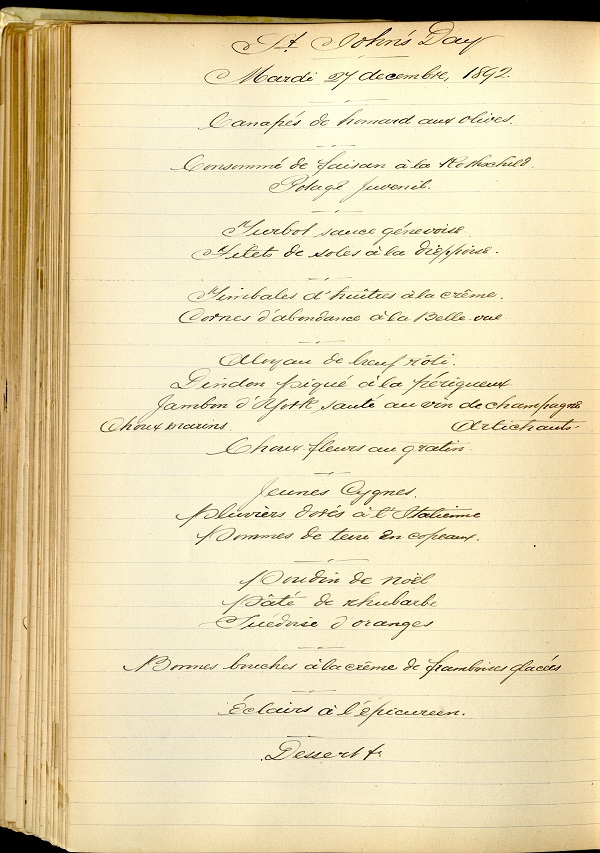 St. John's Day
Mardi 27 decembre, 1892.
Canapés de homard aux olives.
Consommé de faisan à la Rothschild.
Potage Juvenil.
Turbot sauce génevoise
Filets de soles à la dieppoise.
Timbales d'huîtres à la crême.
Cornes d'abondance à la Belle-vue
Aloyau de bœuf rôti.
Dindon piqué à la périgueux
Jambon d'York, sauté au vin de champagne
Choux marins. Artichauts.
Choux-fleurs au gratin.
Jeunes Cygnes.
Pluviers dorés à l'Italienne
Pommes de terre en copeaux.
Poudin de noël
Pâté de rhubarbe
Suedoise d'oranges
Bonnes bouches à la crême de framboises glacées
Éclairs à l'épicureen.
Dessert &